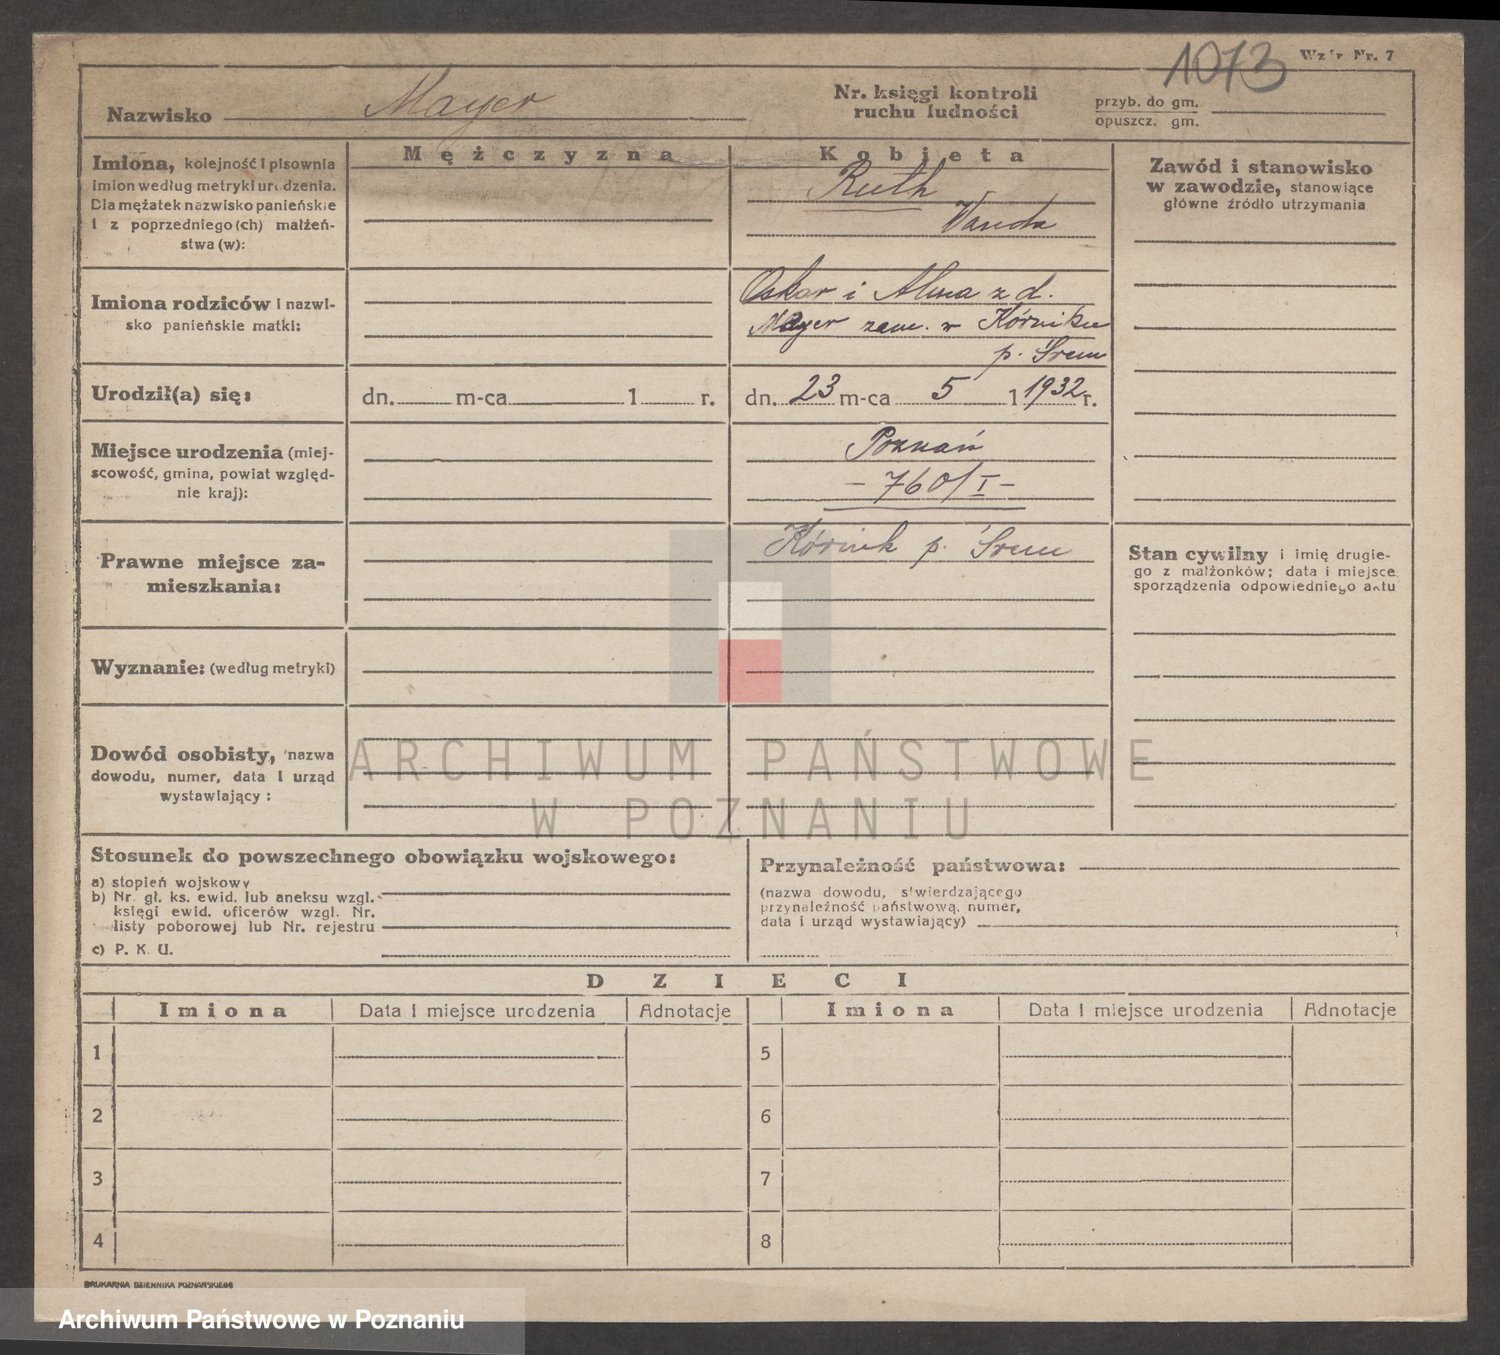 1073
Wzór Nr. 7
Nazwisko Mayer
Nr. księgi kontroli
ruchu ludności
przyb. do gm.
opuszcz. gm.
Imiona, kolejność i pisownia
imion według metryki urodzenia.
Dla mężatek nazwisko panieńskie
i z poprzedniego (ch) małżeń-
stwa (w):
Mężczyzna
Kobieta
Ruth
Vanda
Zawód i stanowisko
w zawodzie, stanowiące
główne źródło utrzymania
Imiona rodziców i nazwi-
sko panieńskie matki:
Oskar i Alma z d.
Mayer zam. w Kórniku
p. Śrem
Urodził(a) się:
dn. m-ca 1 r.
dn. 23 m-ca 5 1 1932 r.
Miejsce urodzenia (miej-
scowość, gmina, powiat względ-
nie kraj):
Poznań
- 760/I -
Prawne miejsce za-
mieszkania:
Kórnik p. Śrem
Stan cywilny i imię drugie-
go z małżonków; data i miejsce
sporządzenia odpowiedniego aktu
Wyznanie: (według metryki)
Dowód osobisty, nazwa
dowodu, numer, data i urząd
wystawiający :
ARCHIWUM PAŃSTWOWE
W POZNANIU
Stosunek do powszechnego obowiązku wojskowego:
a) stopień wojskowy
b) Nr. gł. ks. ewid. lub aneksu wzgl.
księgi ewid. oficerów wzgl. Nr.
listy poborowej lub Nr. rejestru
c) P. K. U.
Przynależność państwowa:
(nazwa dowodu, stwierdzającego
przynależność państwową, numer,
data i urząd wystawiający)
DZIECI
Imiona Data i miejsce urodzenia Adnotacje Imiona Data i miejsce urodzenia Adnotacje
1 5
2 6
3 7
4 8
DRUKARNIA DZIENNIKA POZNAŃSKIEGO
Archiwum Państwowe w Poznaniu